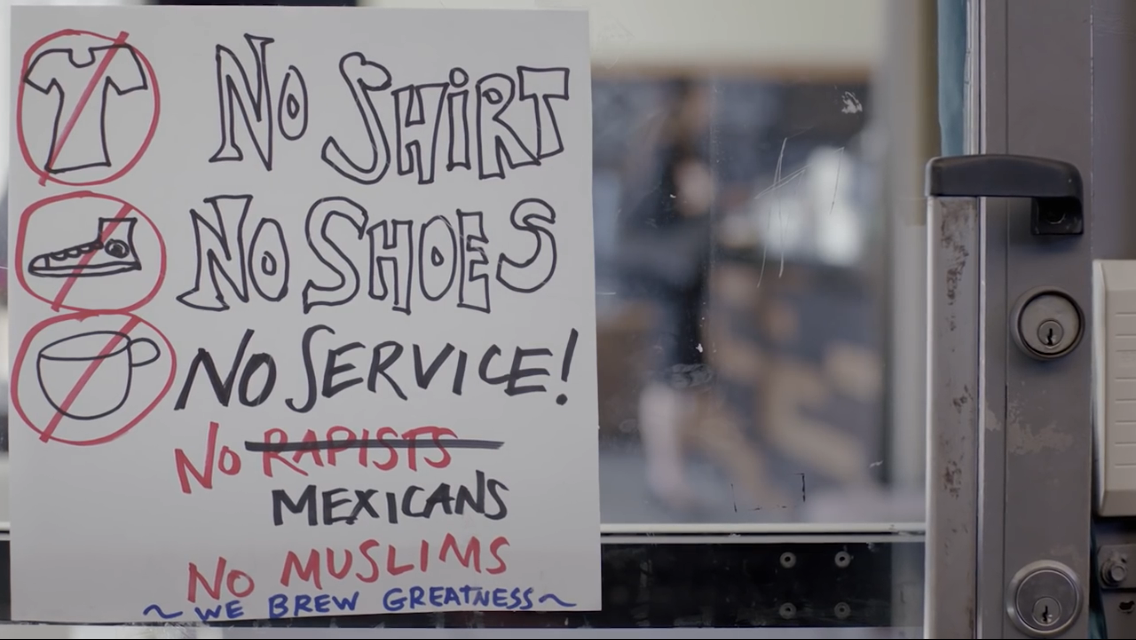 NO SHiRT
NO SHOES
NO SERVICE!
NO RAPISTS
MEXICANS
NO MUSLIMS
~ WE BREW GREATNESS ~